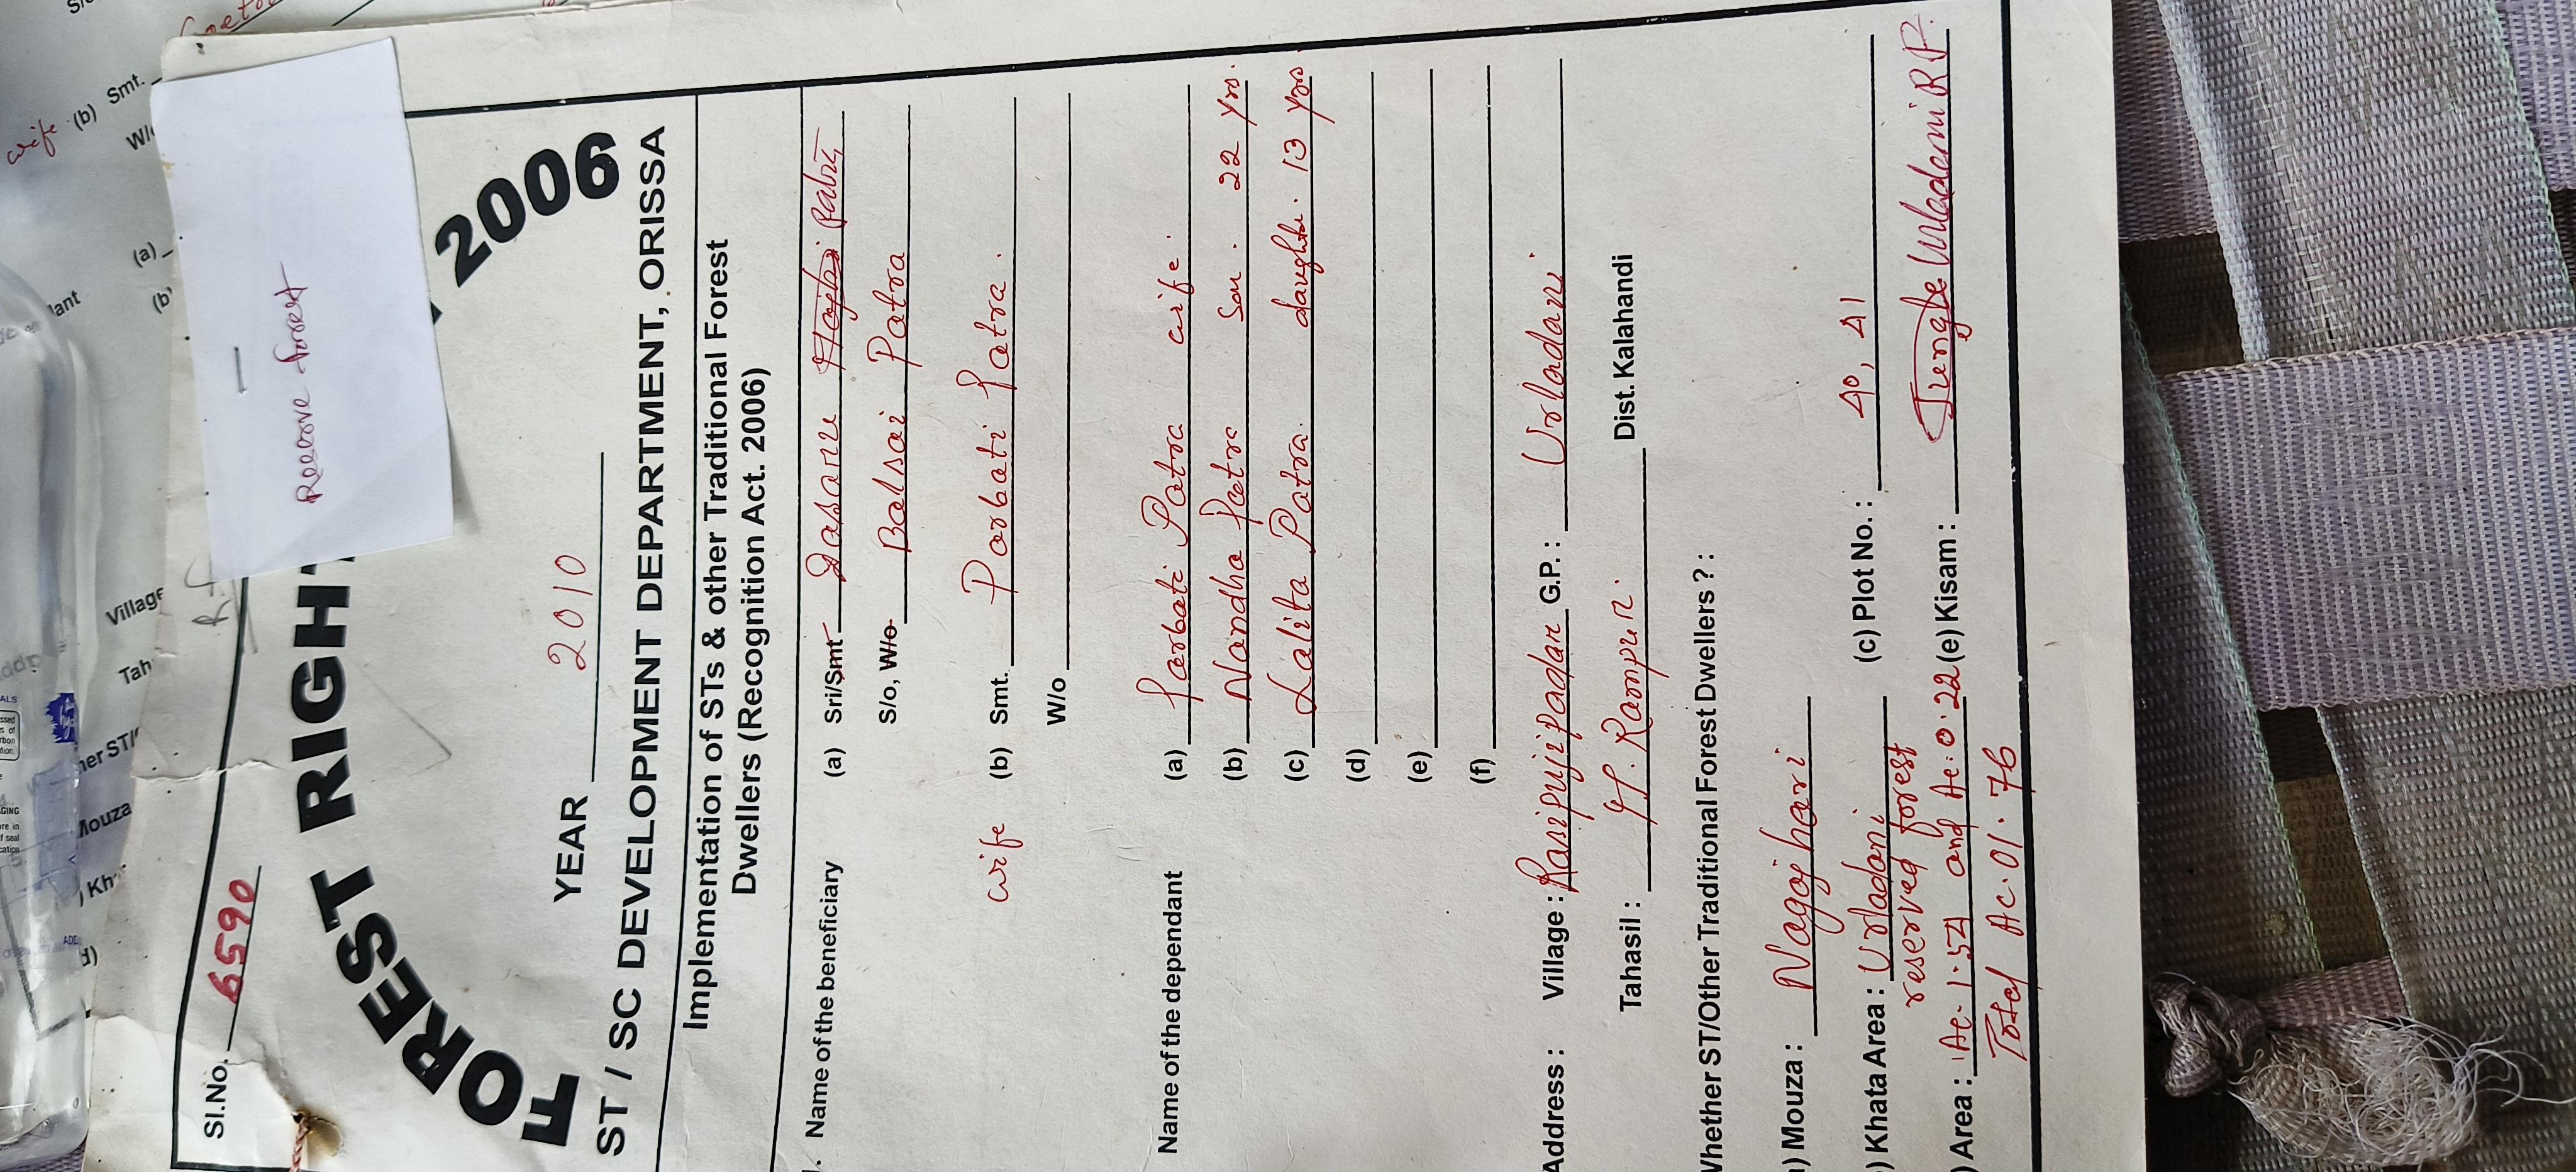 Sl.No. 6590
Reserve forest
R.F
FOREST RIGHT 2006
YEAR 2010
ST / SC DEVELOPMENT DEPARTMENT, ORISSA
Implementation of STs & other Traditional Forest
Dwellers (Recognition Act. 2006)
Name of the beneficiary (a) Sri/Smt. Dasaru Patra
S/o, W/o Balsai Patra
wife (b) Smt. Parbati Patra.
W/o
Name of the dependant (a) Parbati Patra wife.
(b) Nandha Patra Son. 22 yrs.
(c) Lalita Patra. daughter. 13 yrs
(d)
(e)
(f)
Address : Village : Rasipujipadar G.P. : Urladani
Tahasil : Th. Rampur Dist. Kalahandi
Whether ST/Other Traditional Forest Dwellers ? :
) Mouza : Nagojhari
) Khata Area : Urladani reserved forest (c) Plot No. : 40, 41
) Area : Ac. 1.54 and Ac. 0.22 (e) Kisam : Jungle Urladani R.F.
Total Ac. 01.76
wife (b) Smt.
W/o
(a)
(b)
Village
Tah
her ST/
Mouza
) Kh
d)